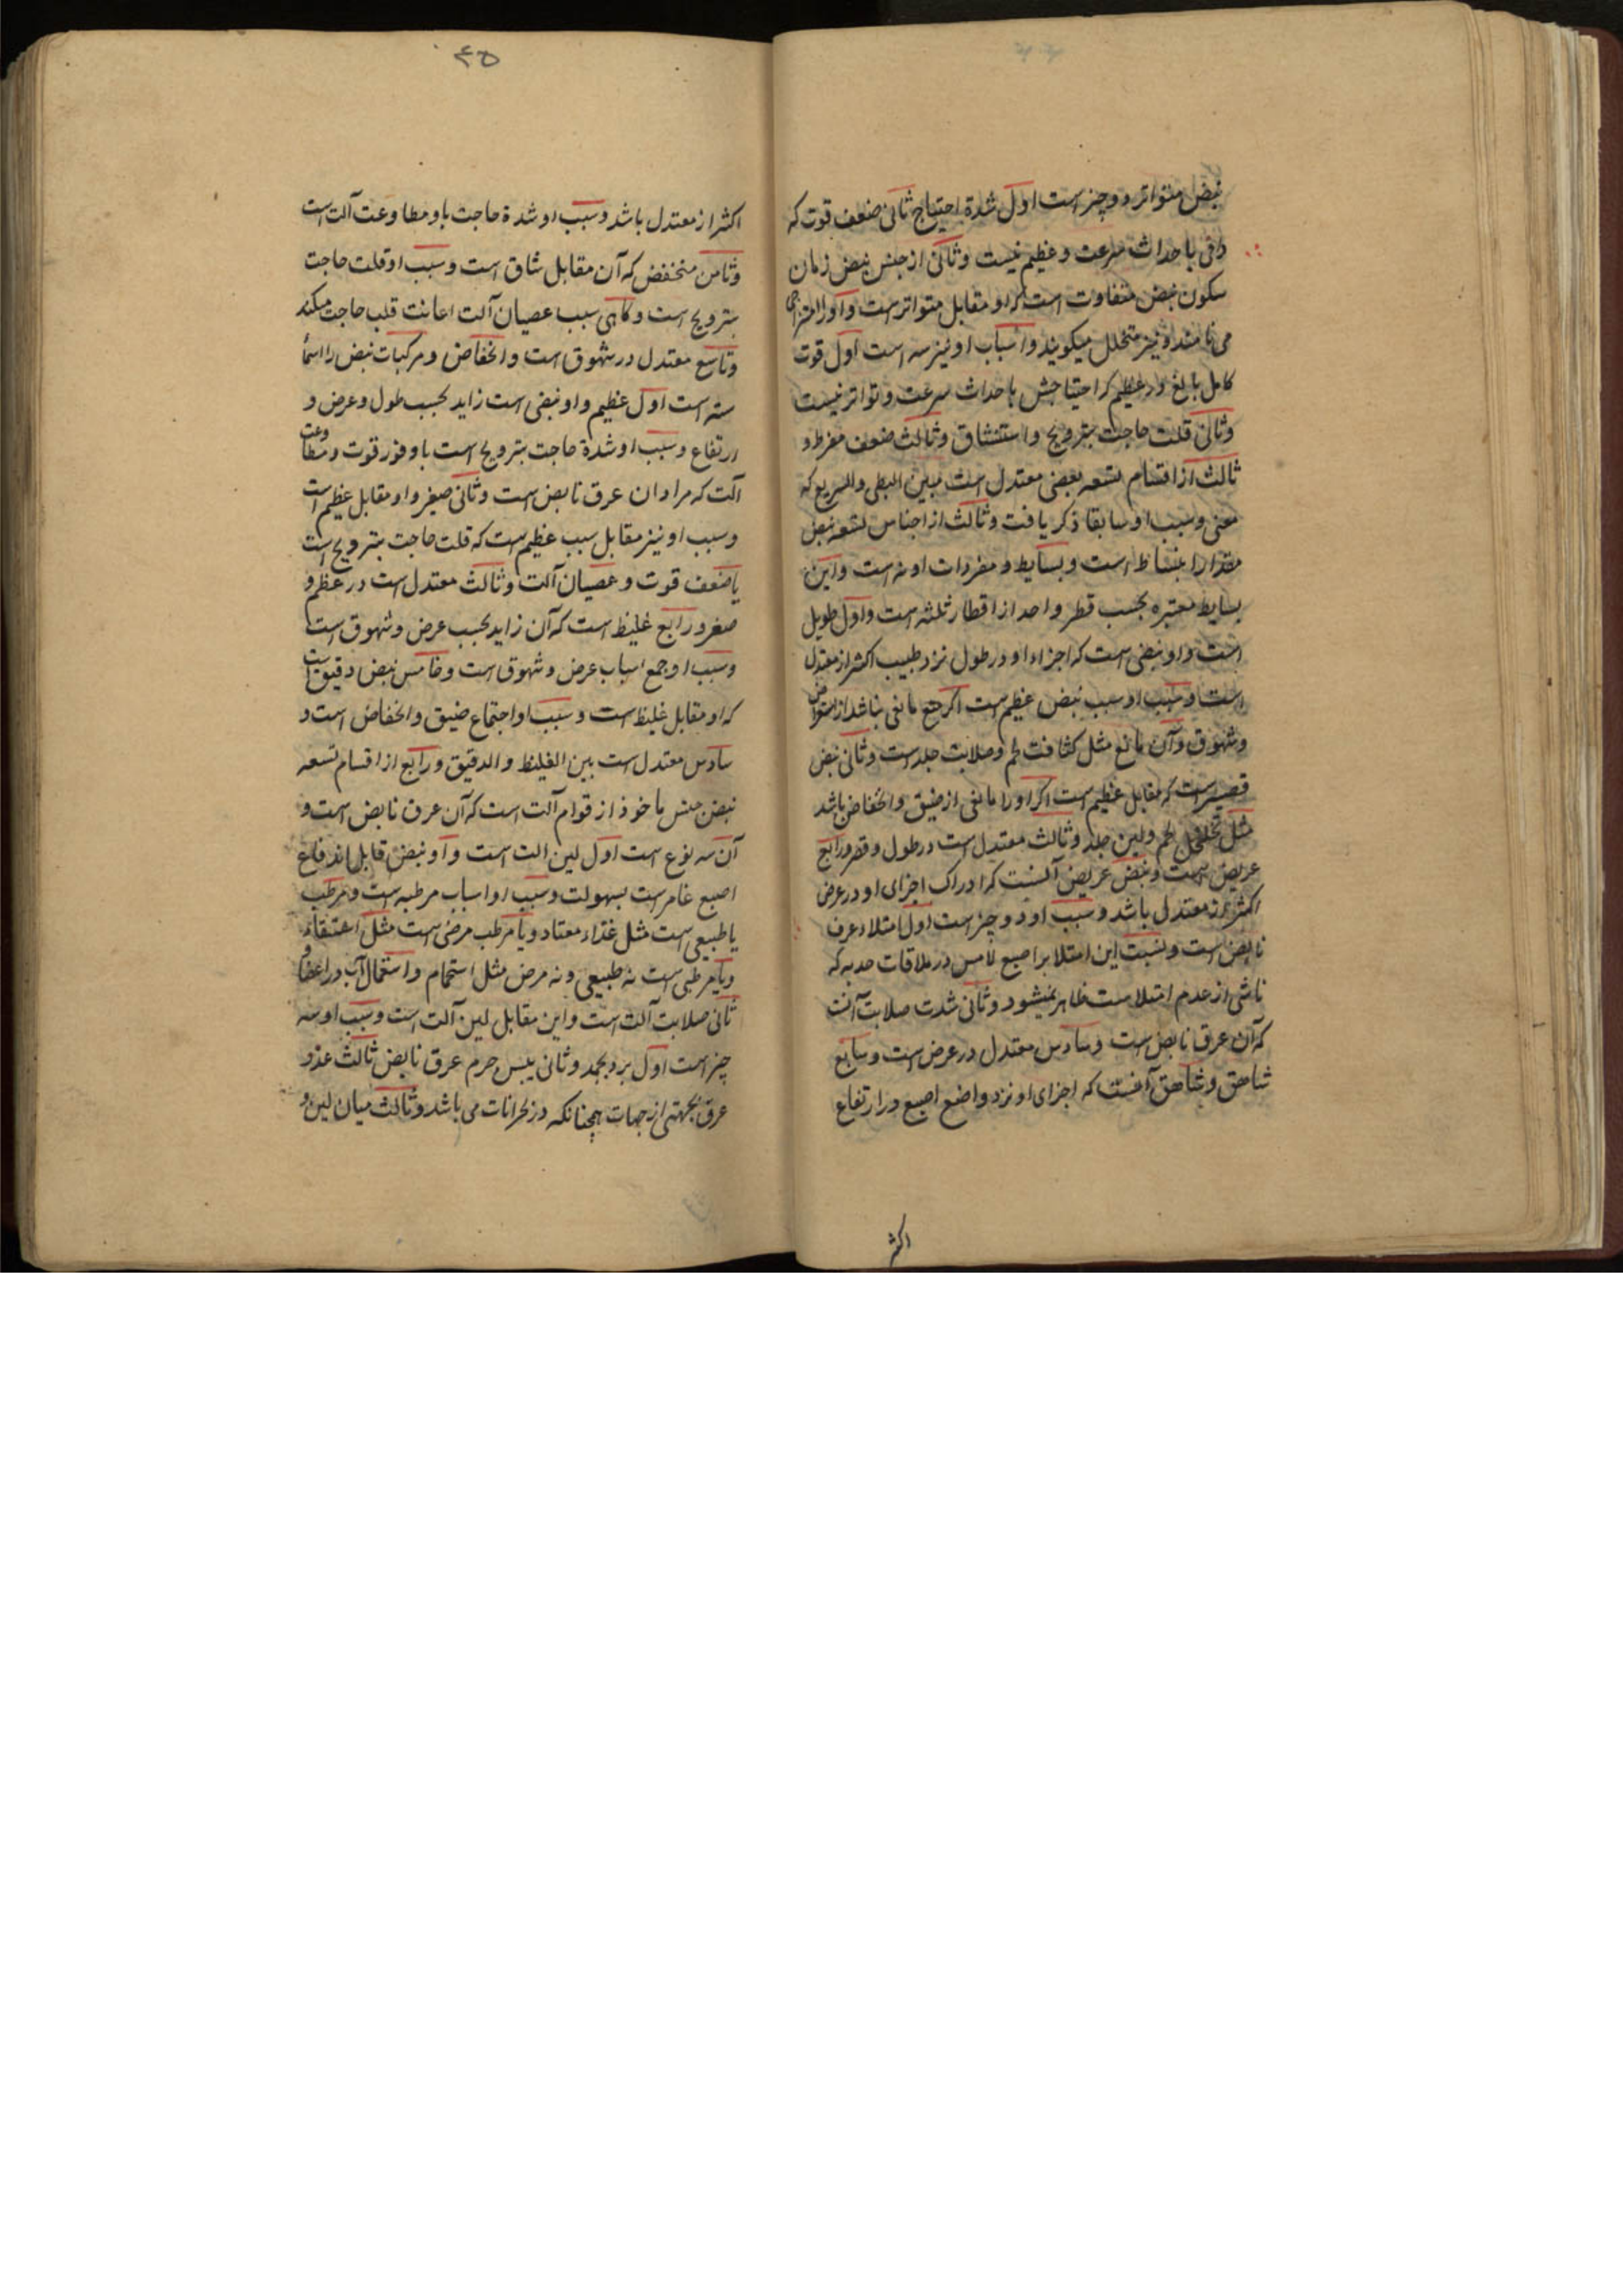 نبض متواتر دو چیز است اول شدة احتیاج ثانی ضعف قوت که
وافی باحداث سرعت و عظیم نیست و ثانی از جنس نبض زمان
سکون نبض متفاوت است که او مقابل متواتر است و او را متراخی
می نامند و نیز متخلل میکویند و اسباب او نیز سه است اول قوت
کامل بالغ در عظیم که احتیاجش باحداث سرعت و تواتر نیست
و ثانی قلت حاجت بترویح و استنشاق و ثالث ضعف مفرط و
ثالث از اقسام تسعه بعضی معتدل است مبین البطی والسریع که
معنی و سبب او سابقا ذکر یافت و ثالث از اجناس تسعه نبض
مقدار انبساط است و بسایط و مفردات او نه است و این
بسایط معتبره بحسب قطر واحد از اقطار ثلثه است و اول طویل
است و او نبضی است که اجزاء او در طول نزد طبیب اکثر از معتدل
است و سبب او سبب نبض عظیم است اکر هیچ مانعی نباشد از استعراض
و شهوق و آن مانع مثل کثافت لحم و صلابت جلد است و ثانی نبض
قصیر است که مقابل عظیم است اکر او را مانعی از ضیق و انخفاض باشد
مثل تخلخل لحم و لین جلد و ثالث معتدل است در طول و قصر و رابع
عریض است و نبض عریض آنست که ادراک اجزای او در عرض
اکثر از معتدل باشد و سبب او دو چیز است اول امتلاء عرق
نابض است و بنسبت این امتلا بر اصبع لامس در ملاقات جدبه که
ناشی از عدم امتلا است ظاهر نمیشود و ثانی شدت صلابت آلت
که آن عرق نابض است و سادس معتدل در عرض است و سابع
شاهق و شاهق آنست که اجزای او نزد واضع اصبع در ارتفاع
اکثر
٤٥
اکثر از معتدل باشد و سبب او شدة حاجت با و مطاوعت آلت است
و ثامن منخفض که آن مقابل شاق است و سبب او قلت حاجت
بترویح است و کاهی سبب عصیان آلت اعانت قلب حاجت میکند
و تاسع معتدل در شهوق است و انخفاض و مرکبات نبض را اسمأ
سته است اول عظیم و او نبضی است زاید بحسب طول و عرض و
ارتفاع و سبب او شدة حاجت بترویح است با وفور قوت و مطاوعت
آلت که مراد ان عرق نابض است و ثانی صغیر و او مقابل عظیم است
و سبب او نیز مقابل سبب عظیم است که قلت حاجت بترویح است
یا ضعف قوت و عصیان آلت و ثالث معتدل است در عظم و
صغر و رابع غلیظ است که آن زاید بحسب عرض و شهوق است
و سبب او جمع اسباب عرض و شهوق است و خامس نبض دقیق است
که او مقابل غلیظ است و سبب او اجتماع ضیق و انخفاض است و
سادس معتدل است بین الغلیظ و الدقیق و رابع از اقسام تسعه
نبض جنس ماخوذ از قوام آلت است که آن عرق نابض است و
آن سه نوع است اول لین الت است و او نبض قابل اندفاع
اصبع غامر است بسهولت و سبب او اسباب مرطبه است و مرطب
یا طبیعی است مثل غذاء معتاد و یا مرطب مرضی است مثل استسقاء
و یا مرطبی است نه طبیعی و نه مرض مثل استحمام و استعمال آب در اعضا و
ثانی صلابت آلت است و این مقابل لین آلت است و سبب او سه
چیز است اول برد مجمد و ثانی یبس جرم عرق نابض ثالث عذو
عرق بجهتی از جهات همچنانکه در بحرانات می باشد و ثالث میان لین و